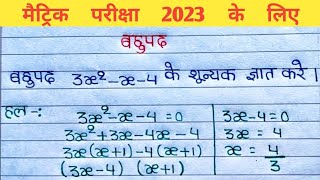 मैट्रिक परीक्षा 2023 के लिए
बहुपद
बहुपद 3x²-x-4 के शून्यक ज्ञात करे।
हल -:
3x²-x-4=0
3x²+3x-4x-4
3x(x+1)-4(x+1)
(3x-4) (x+1)
3x-4=0
3x = 4
x = 4/3